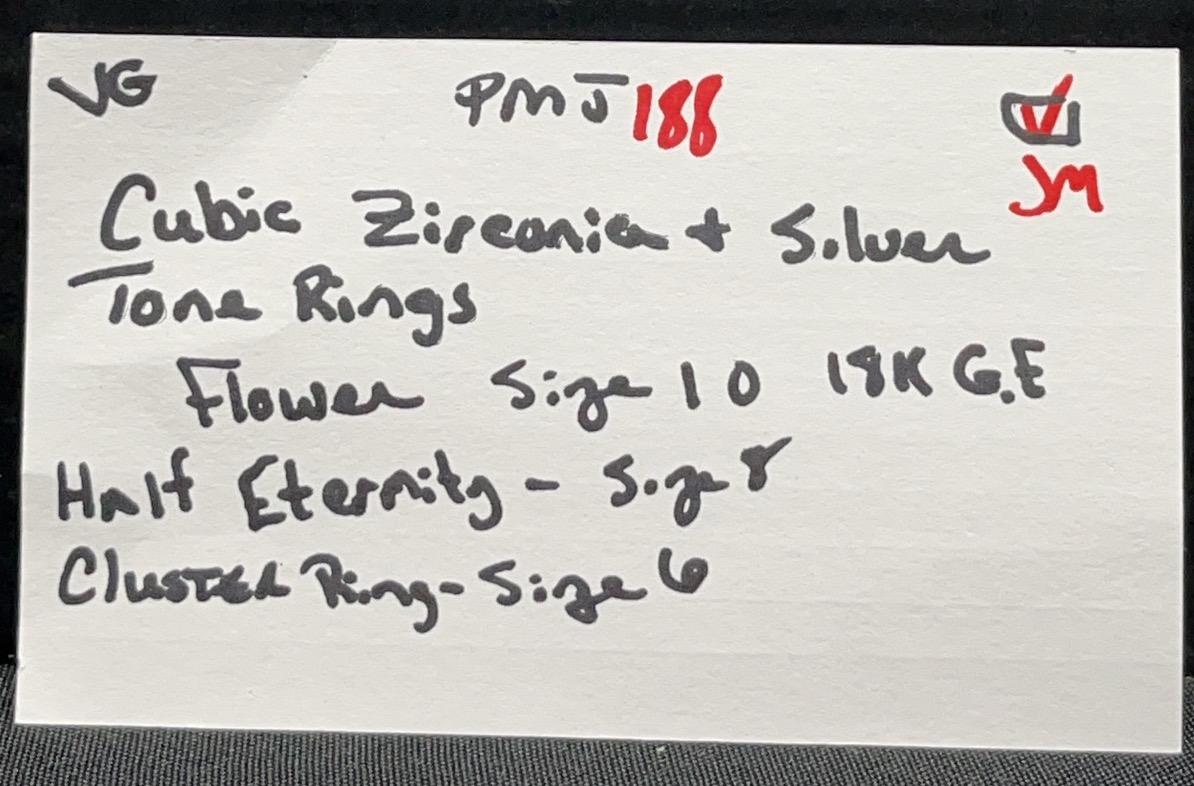 VG PMJ 188
JM
Cubic Zirconia + Silver
Tone Rings
Flower Size 10 18K G.E
Half Eternity - Size 8
Cluster Ring - Size 6